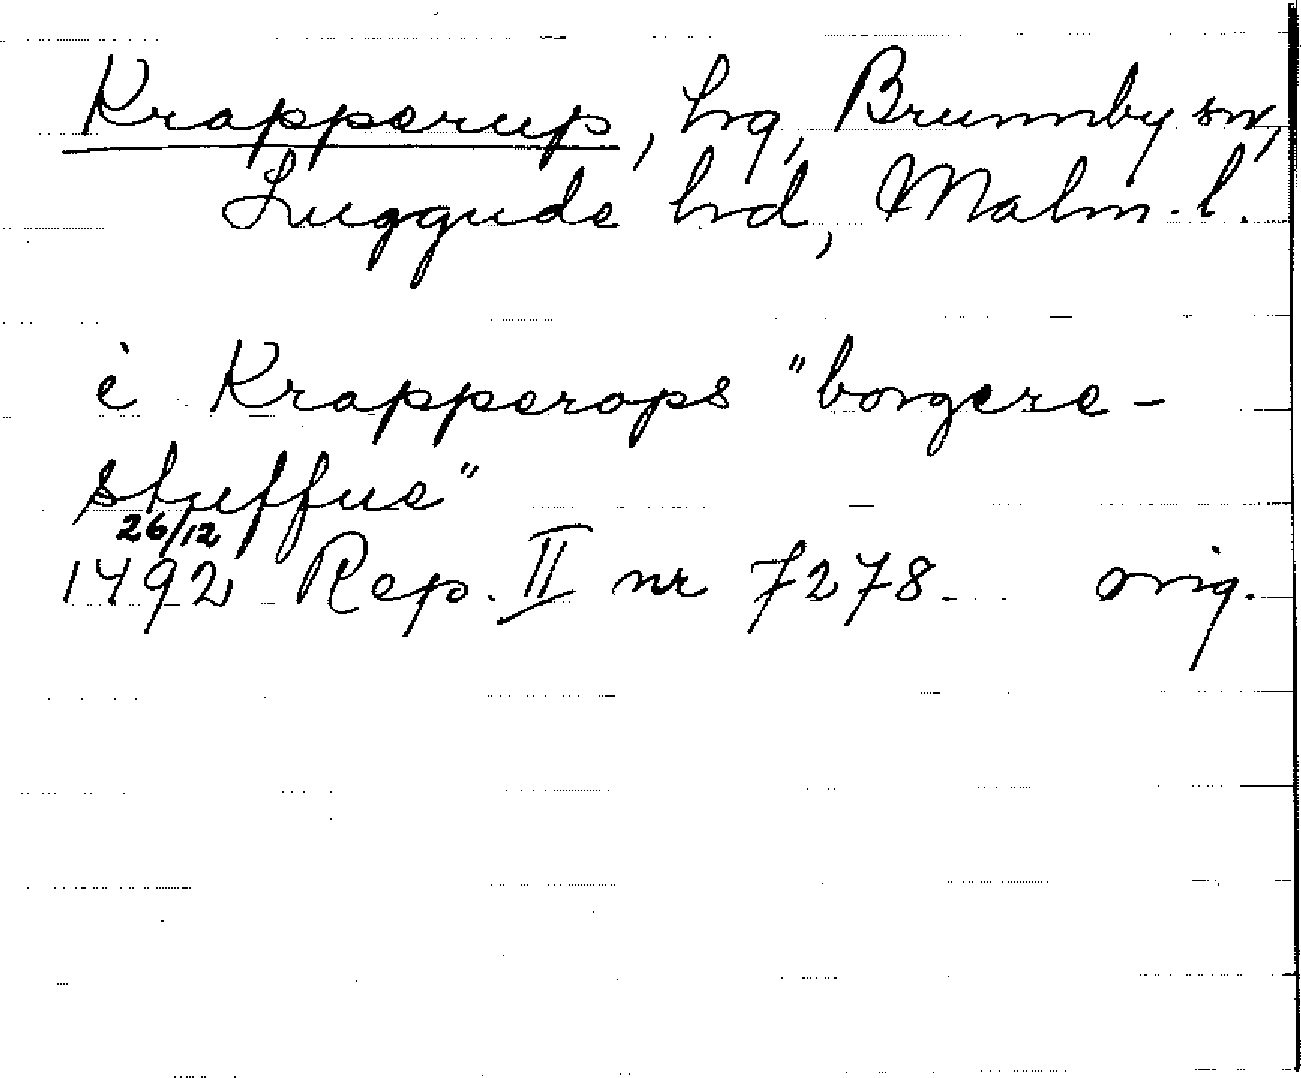 Krapperup, hg, Brunnby sn,
Luggude hd, Malm. l.
i Krapperops "borgere-
stuffue"
26/12
1492 Rep. II nr 7278. orig.